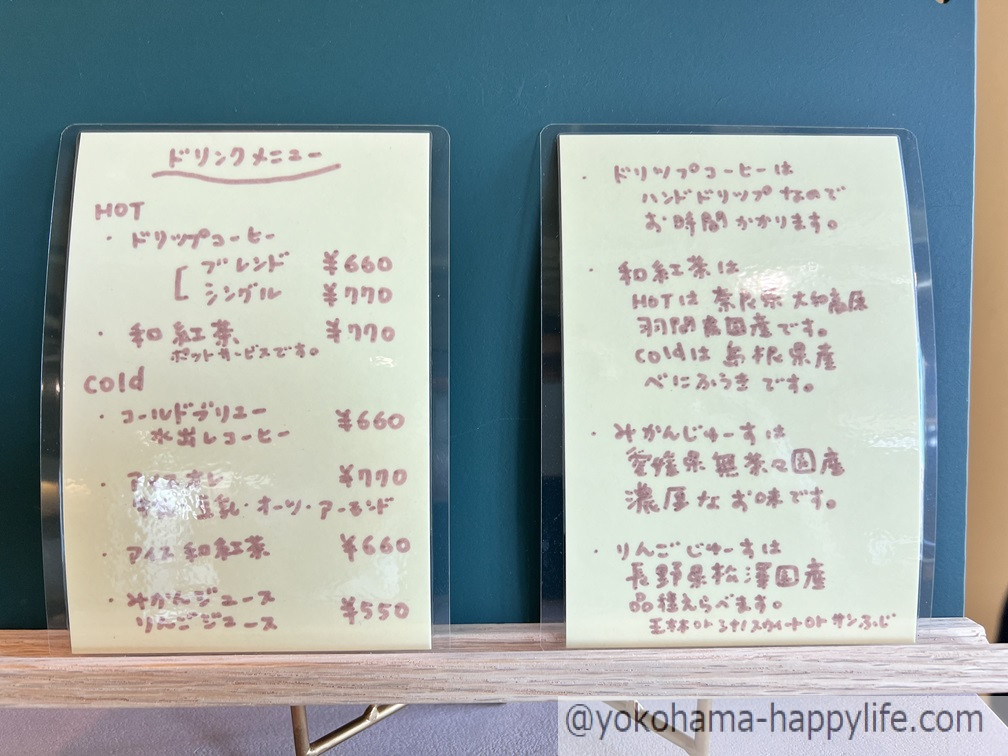 ドリンクメニュー
HOT
・ドリップコーヒー
ブレンド ¥660
シングル ¥770
・和紅茶 ¥770
ポットサービスです。
cold
・コールドブリュー ¥660
水出しコーヒー
・アイスオレ ¥770
豆乳・オーツ・アーモンド
・アイス和紅茶 ¥660
・みかんジュース ¥550
りんごジュース
・ドリップコーヒーは
ハンドドリップなので
お時間かかります。
・和紅茶は
HOTは奈良県大和高原
羽間農園産です。
coldは島根県産
べにふうきです。
・みかんじゅーすは
愛媛県無茶々園産
濃厚なお味です。
・りんごじゅーすは
長野県松澤園産
品種えらべます。
王林 or シナノスウィート or サンふじ
@yokohama-happylife.com